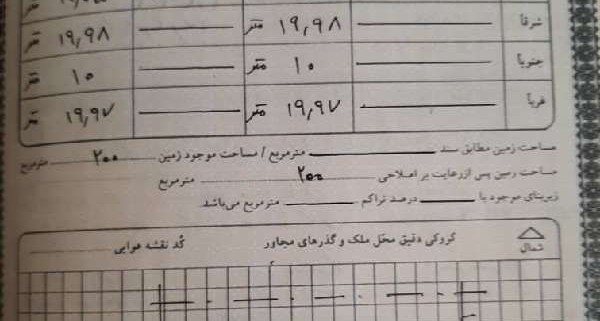 متر
شرقاً ۱۹,۹۸ متر ۱۹,۹۸ متر
جنوباً ۱۰ متر ۱۰ متر
غرباً ۱۹,۹۷ متر ۱۹,۹۷ متر
مساحت زمین مطابق سند مترمربع / مساحت موجود زمین ۲۰۰ مترمربع
مساحت زمین پس ازرعایت بر اصلاحی ۲۰۰ مترمربع
زیربنای موجود با درصد تراکم مترمربع می‌باشد.
شمال کروکی دقیق محل ملک و گذرهای مجاور کُد نقشه هوایی